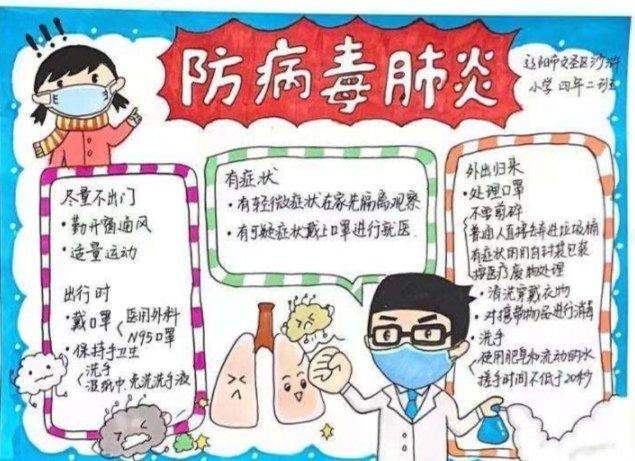 防病毒肺炎
辽阳市文圣区沙浒
小学 四年二班
尽量不出门
·勤开窗通风
·适量运动
出行时
·戴口罩
医用外科
N95口罩
·保持手卫生
洗手
免洗洗手液
有症状
·有轻微症状在家先隔离观察
·有可疑症状戴上口罩进行就医.
外出归来
·处理口罩
不要剪碎
普通人直接丢弃进垃圾桶
有症状用自封袋包装
按医疗废物处理
·清洗穿戴衣物
·对携带物品进行消毒
·洗手
使用肥皂和流动的水
搓手时间不低于20秒